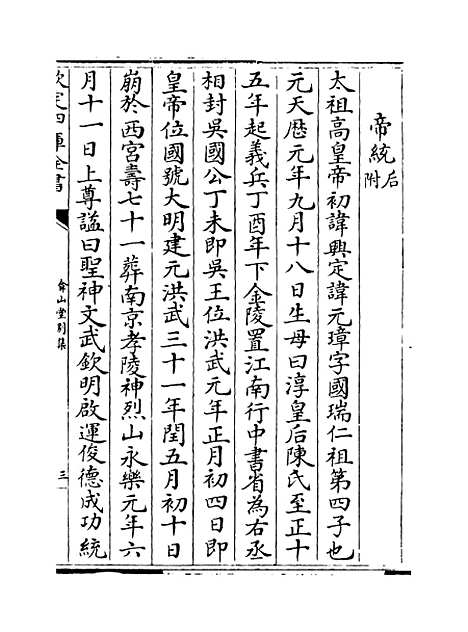 帝統后附
太祖高皇帝初諱興定諱元璋字國瑞仁祖第四子也
元天歷元年九月十八日生母曰淳皇后陳氏至正十
五年起義兵丁酉年下金陵置江南行中書省為右丞
相封吳國公丁未即吳王位洪武元年正月初四日即
皇帝位國號大明建元洪武三十一年閏五月初十日
崩於西宮壽七十一葬南京孝陵神烈山永樂元年六
月十一日上尊諡曰聖神文武欽明啟運俊德成功統
欽定四庫全書
弇山堂別集
三